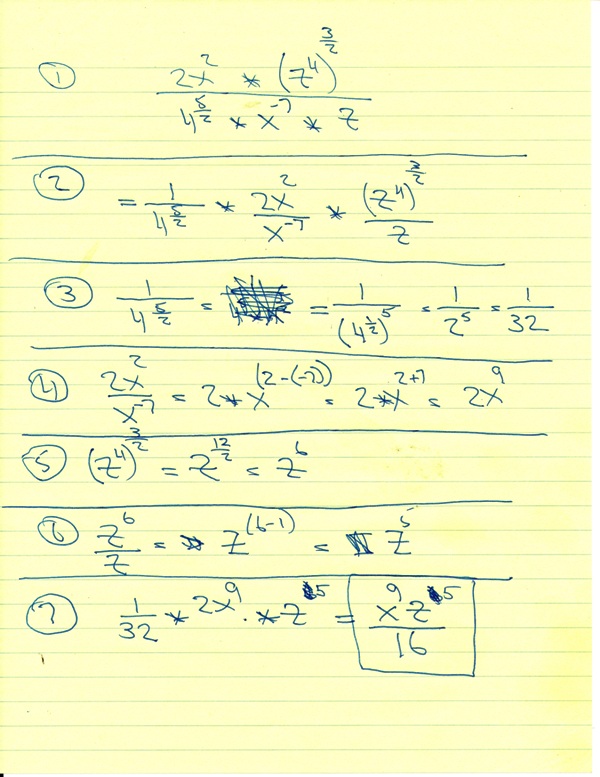 ① (2x² * (z⁴)^(3/2)) / (4^(5/2) * x⁻⁷ * z)
② = 1/4^(5/2) * 2x²/x⁻⁷ * (z⁴)^(3/2)/z
③ 1/4^(5/2) = = 1/(4^(1/2))⁵ = 1/2⁵ = 1/32
④ 2x²/x⁻⁷ = 2*x^(2-(-7)) = 2*x^(2+7) = 2x⁹
⑤ (z⁴)^(3/2) = z^(12/2) = z⁶
⑥ z⁶/z = z^(6-1) = z⁵
⑦ 1/32 * 2x⁹ · * z⁵ = x⁹z⁵/16